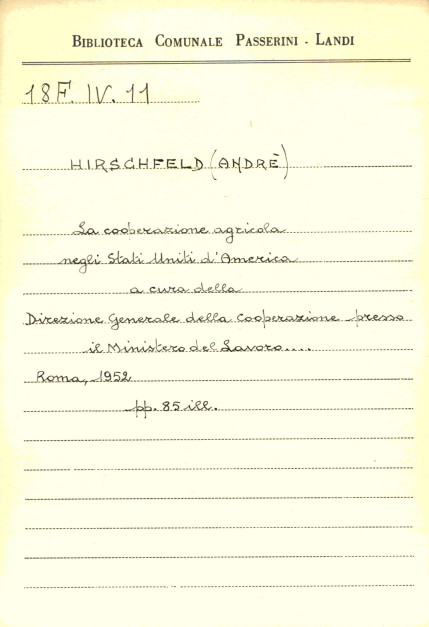 BIBLIOTECA COMUNALE PASSERINI - LANDI
18F. IV. 11
HIRSCHFELD (ANDRÈ)
La cooperazione agricola
negli Stati Uniti d'America
a cura della
Direzione Generale della Cooperazione presso
il Ministero del Lavoro....
Roma, 1952
pp. 85 ill.